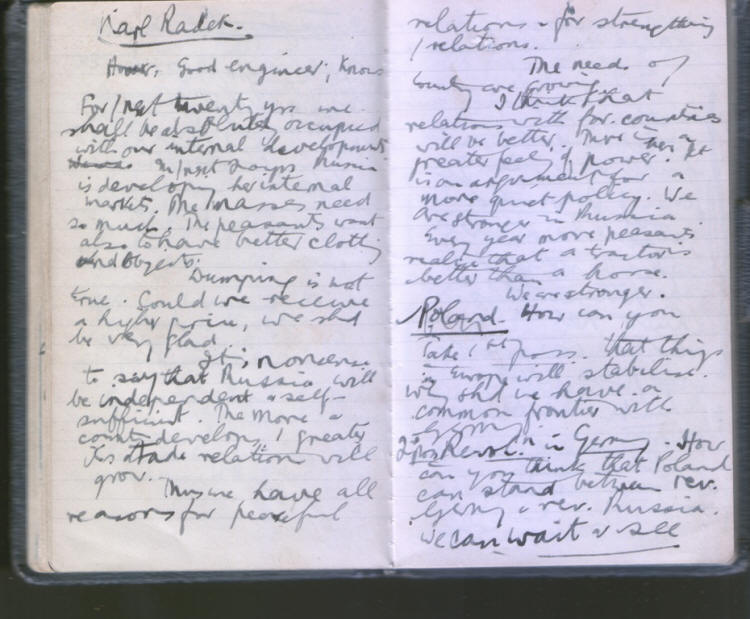 Karl Radek.
Hoover. Good engineer; knows
For / next twenty yrs we
shall be absolutely occupied
with our internal development
In / next 20 yrs Russia
is developing her internal
market. The masses need
so much. The peasants want
also to have better clothg
and objects.
Dumping is not
true. Could we receive
a higher price, we shd
be very glad.
It is nonsense
to say that Russia will
be independent & self-
sufficient. The more a
country develops, / greater
its trade relation will
grow.
Thus we have all
reasons for peaceful
relations & for strengthening
/ relations.
The needs of
country are growing.
I think that
relations with for. countries
will be better. There is now a
greater feelg of power. It
is an argument for a
more quiet policy. We
are stronger in Russia.
Every year more peasants
realise that a tractor is
better than a horse.
We are stronger.
Poland. How can you
Take / 1st poss. that things
in Europe will stabilise.
Why shd we have a
common frontier with
Germy
2d poss Revoln in Germy. How
can you think that Poland
can stand between rev.
Germy & rev. Russia.
We can wait & see